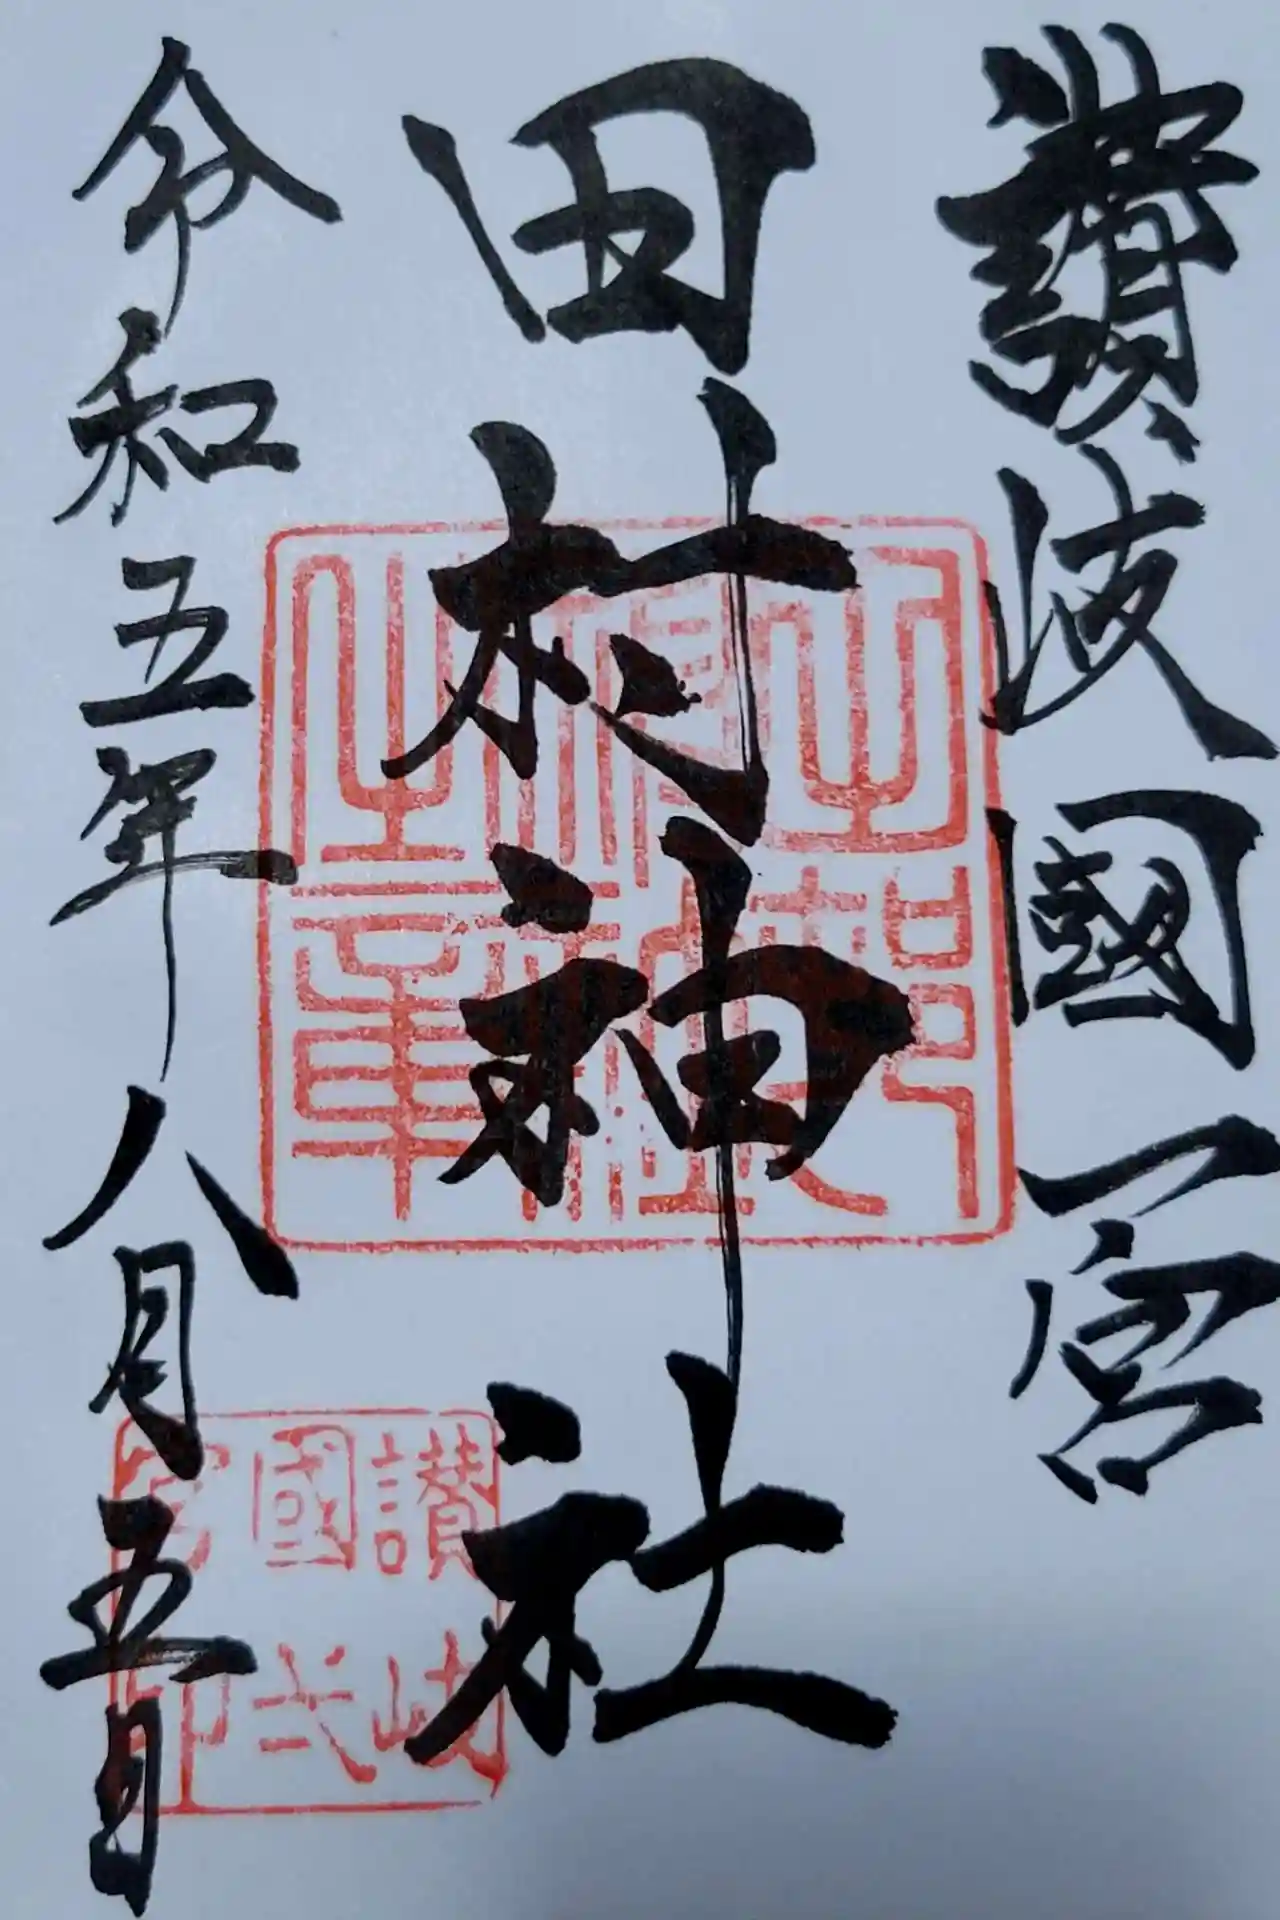 讃岐國一宮
田村神社
令和五年八月五日
讃岐
國弌
宮印